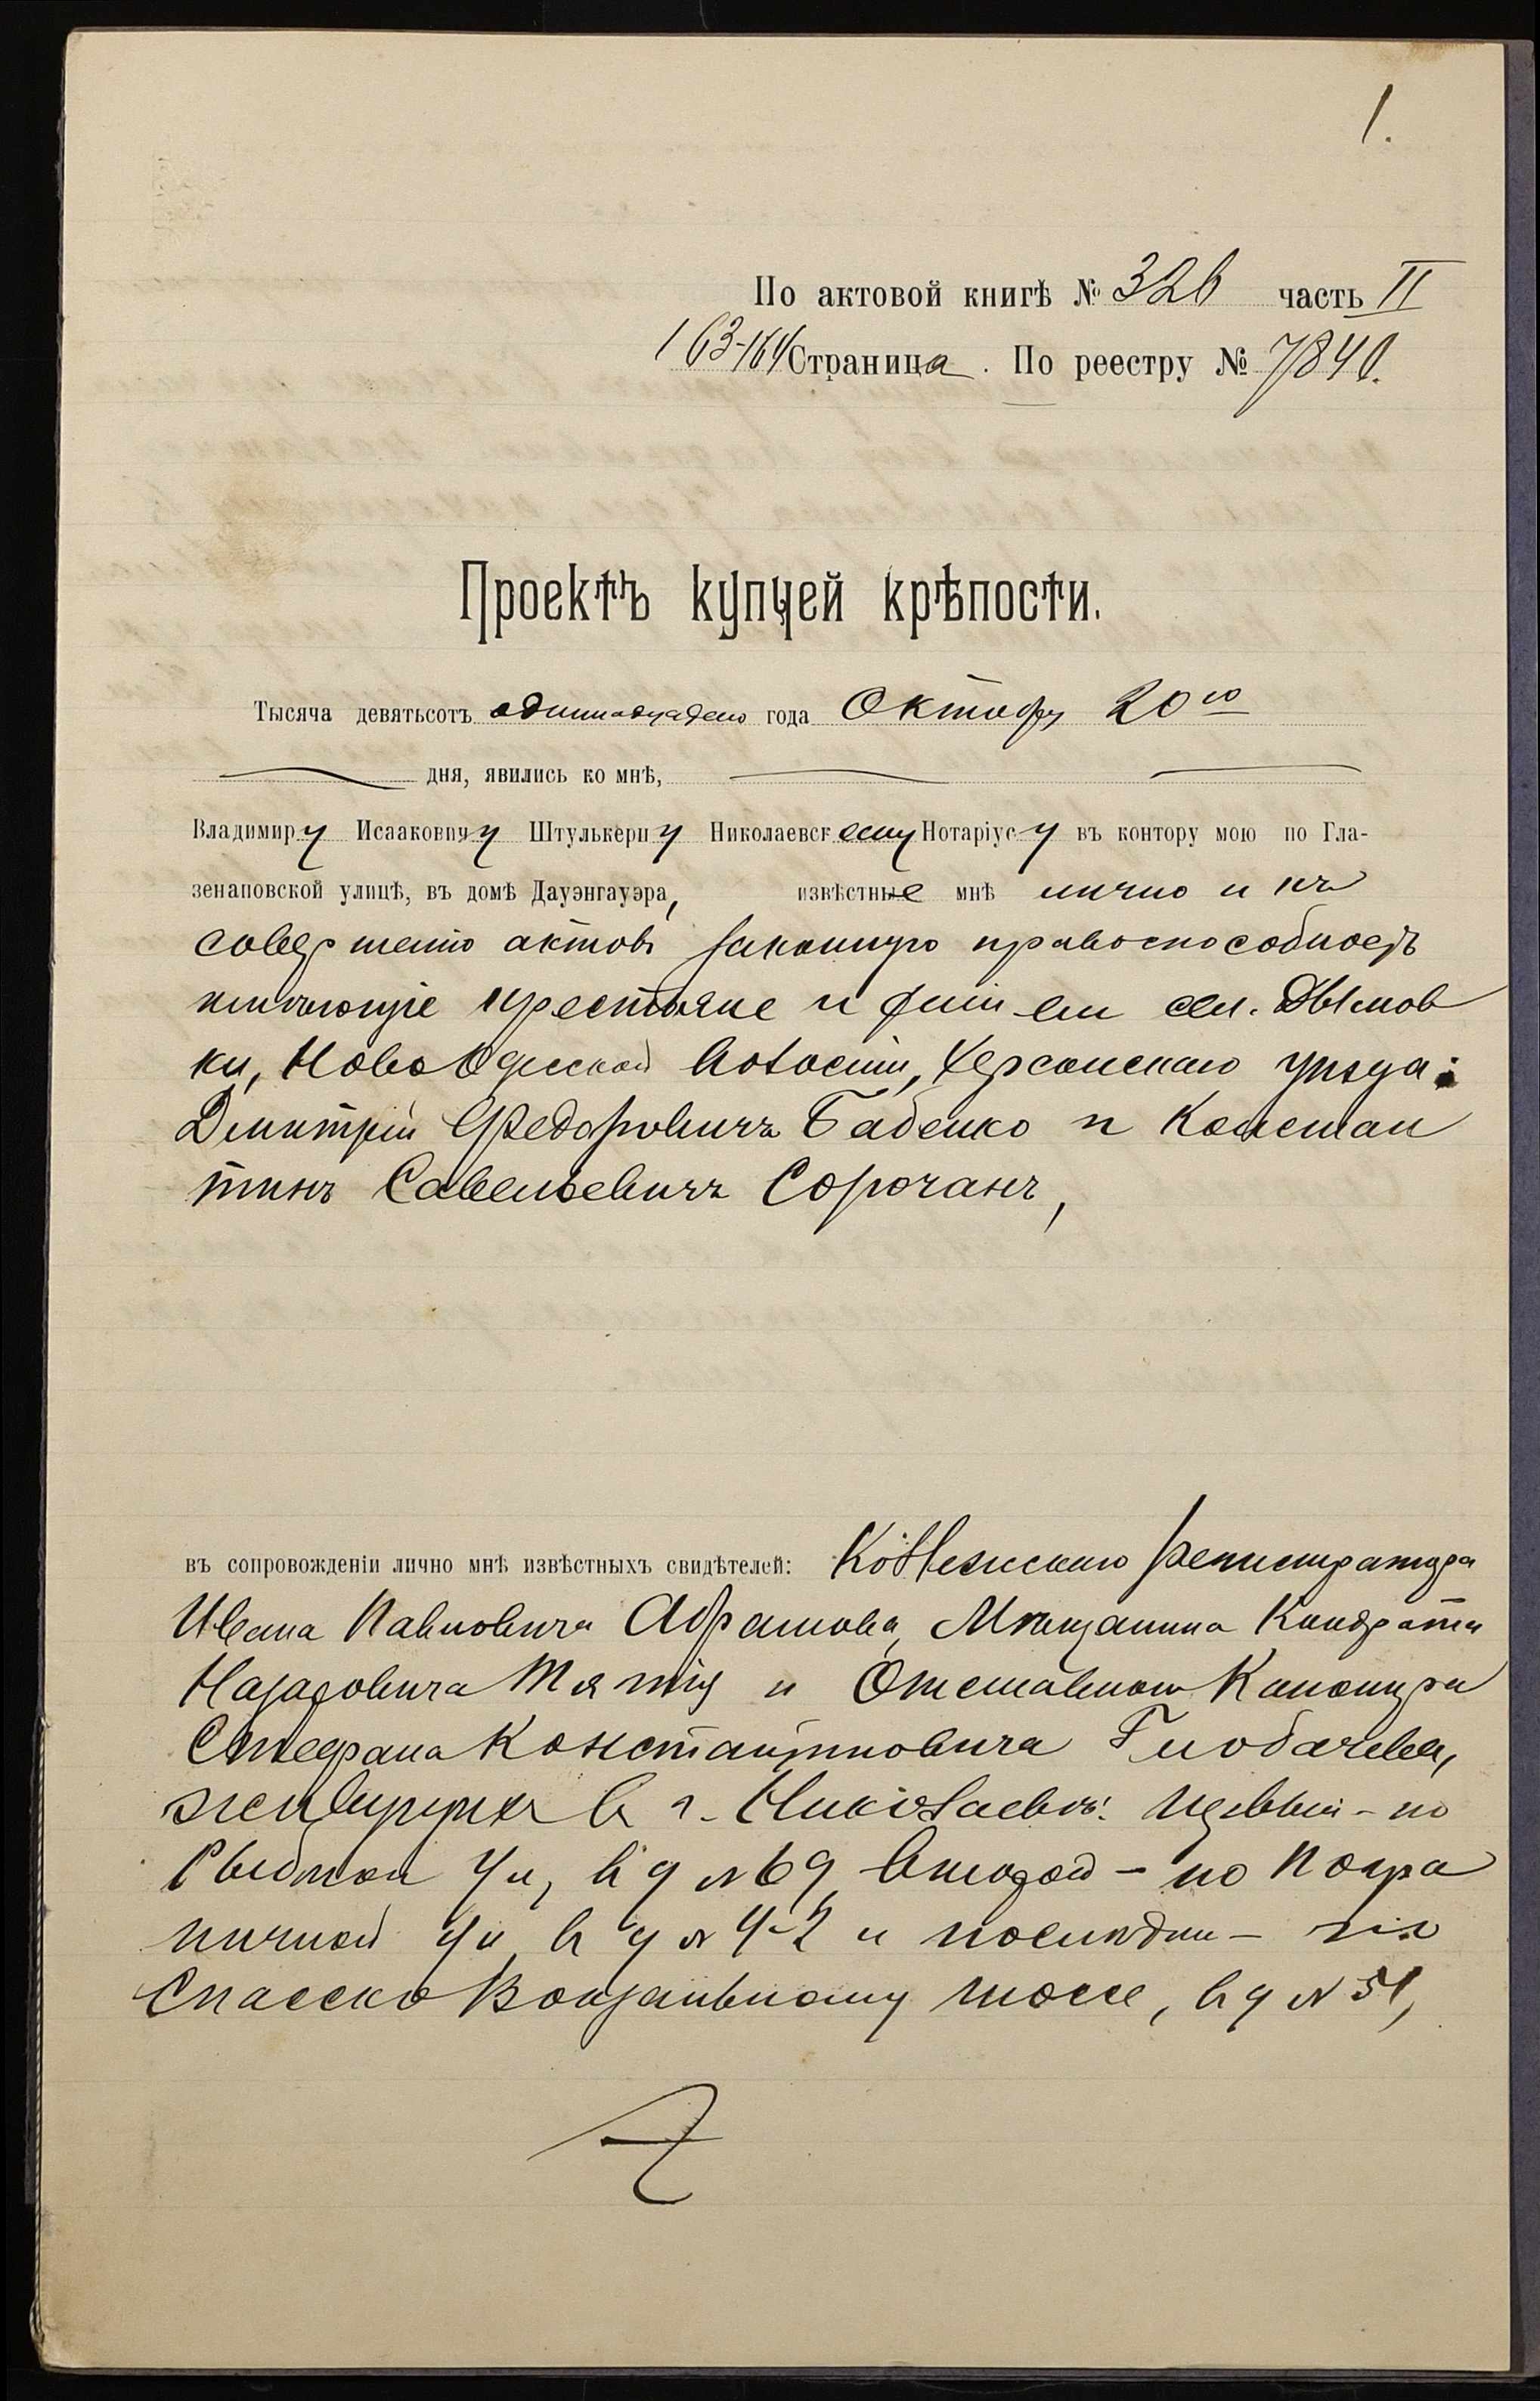 1.
По актовой книгѣ № 326 часть II
163-164 Страница. По реестру № 7840.
Проектъ купчей крѣпости.
Тысяча девятьсотъ одиннадцатаго года Октября 20го
дня, явились ко мнѣ,
Владимиру Исааковичу Штулькерцу Николаевскому Нотаріусу въ контору мою по Гла-
зенаповской улицѣ, въ домѣ Дауэнгауэра, извѣстные мнѣ лично и къ
совершенію актовъ законную правоспособность
имѣющіе крестьяне и жители сел. Дымов
ки, Ново Одесской волости, Херсонскаго уѣзда:
Дмитрій Федоровичъ Бабенко и Констан
тинъ Савельевичъ Сорочанъ,
въ сопровожденіи лично мнѣ извѣстныхъ свидѣтелей: Коллежскаго Регистратора
Ивана Павловича Абрамова, Мѣщанина Кондрата
Назаровича и Отставного Канонира
Стефана Константиновича
живущихъ в г. Николаевѣ: первый - по
Рыбной ул, в д № 69, второй - по Погра
ничной ул, в д № и послѣдни - по
Спасско Вокзальному шоссе, в д № 51,